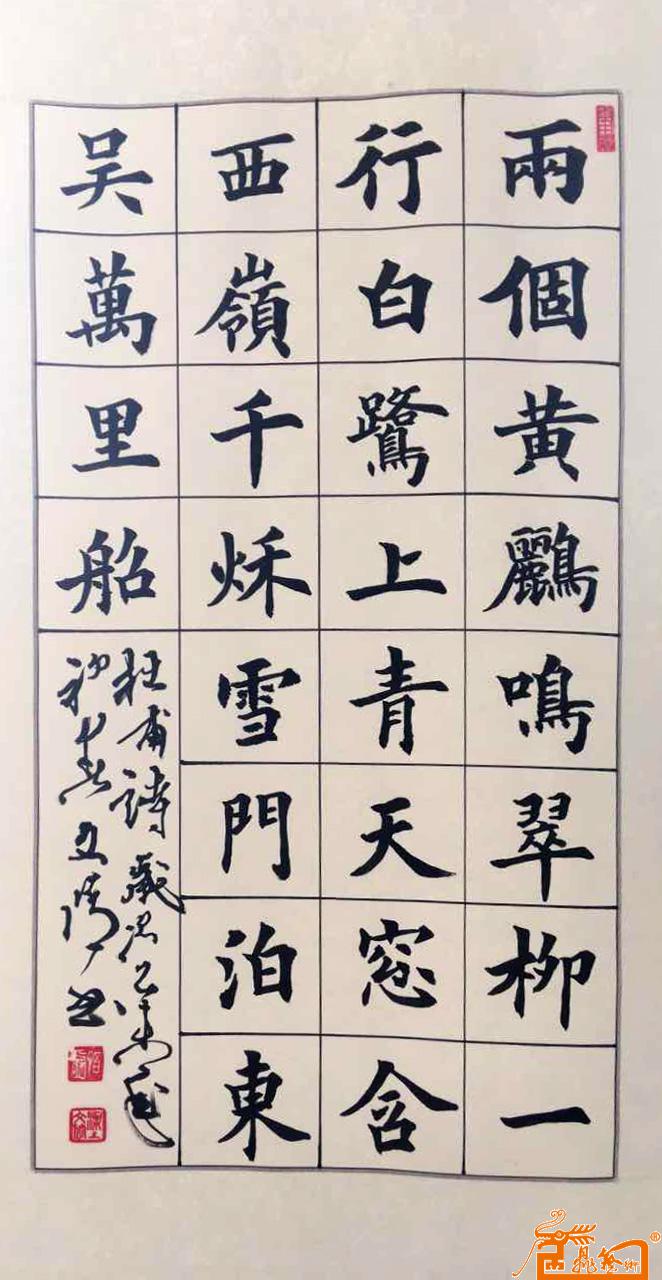 兩個黄鸝鳴翠柳一
行白鷺上青天窓含
西嶺千秌雪門泊東
吴萬里船
杜甫詩歲次乙未年
初春文书